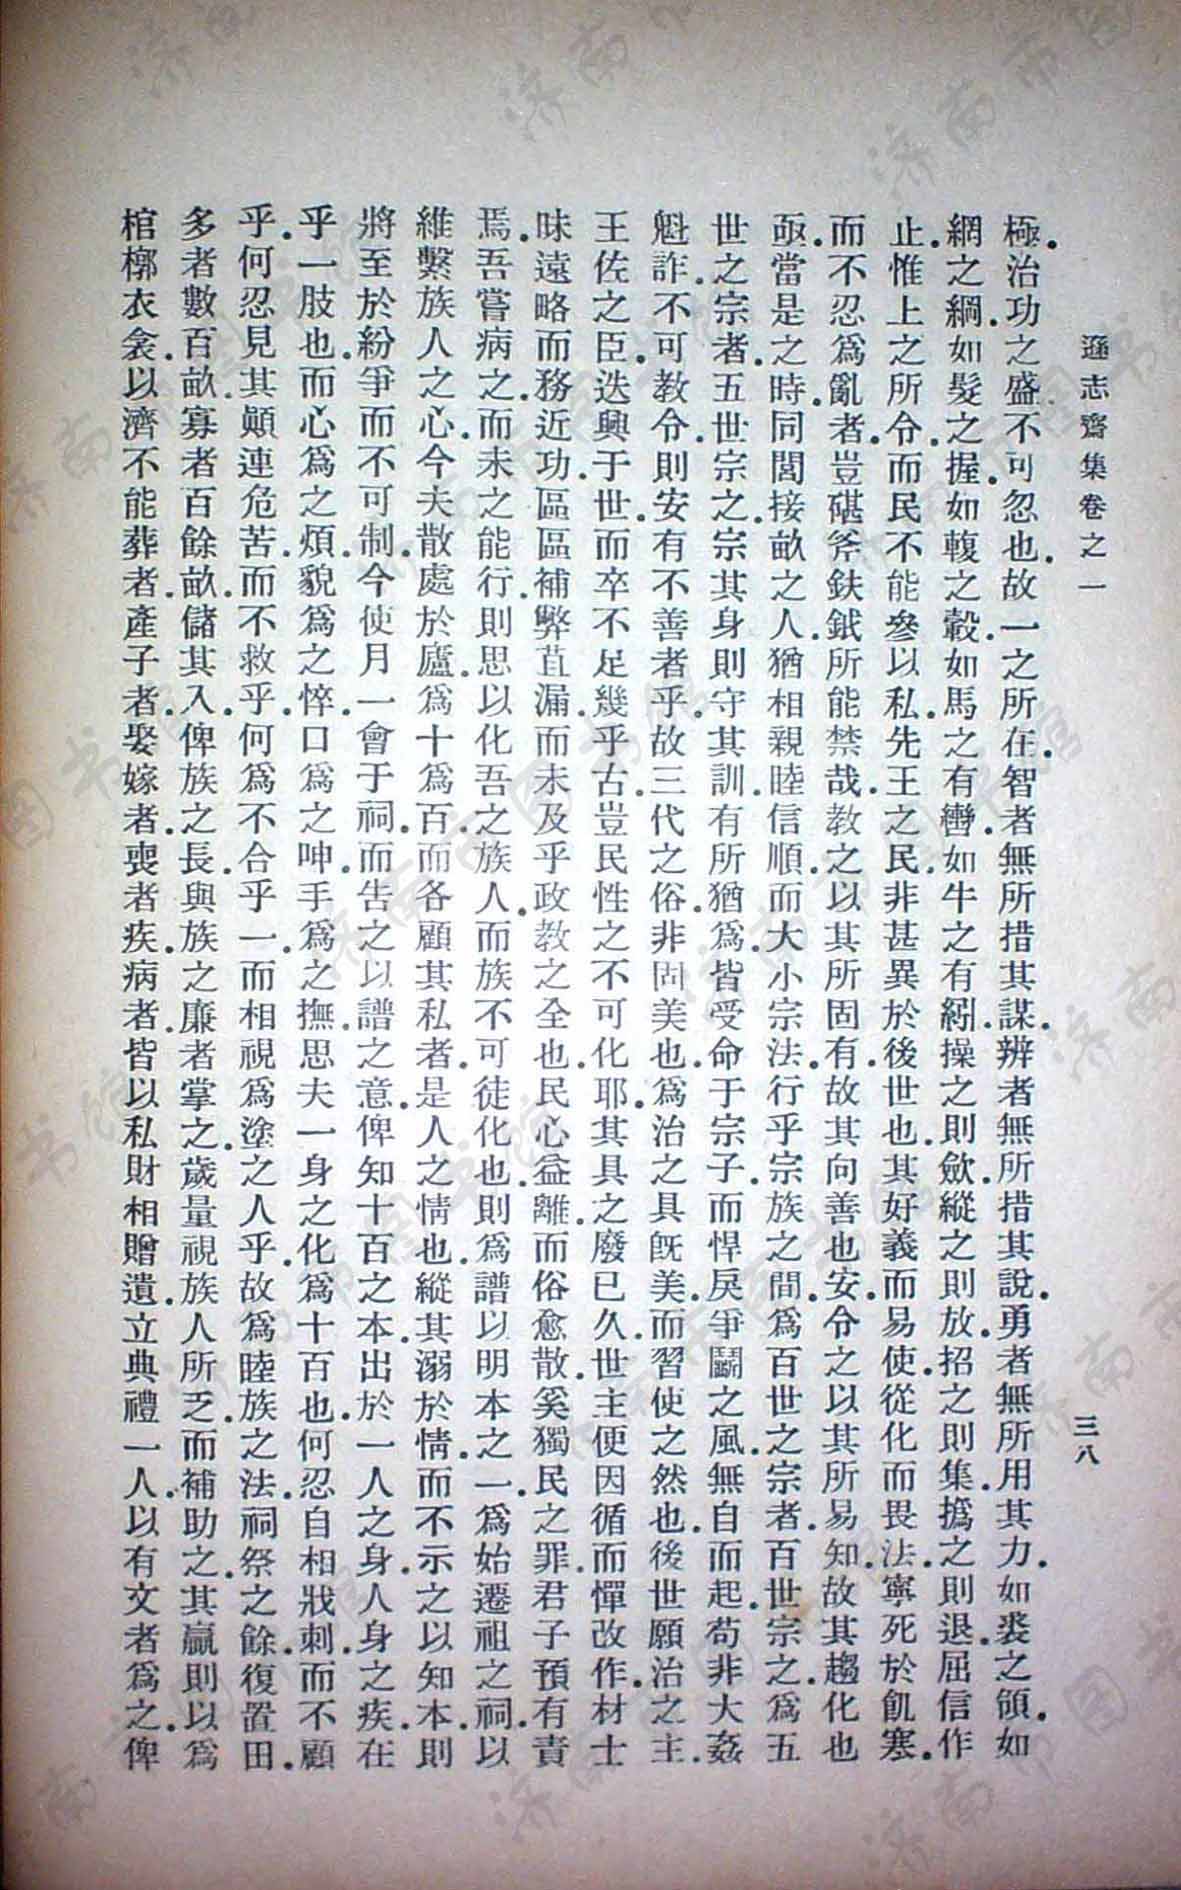 遜志齋集卷之一
三八
極.治功之盛不可忽也.故一之所在.智者無所措其謀.辨者無所措其說.勇者無所用其力.如裘之領.如
網之綱.如髮之握.如輹之轂.如馬之有轡.如牛之有紖.操之則歛.縱之則放.招之則集.撝之則退.屈信作
止.惟上之所令.而民不能參以私.先王之民.非甚異於後世也.其好義而易使.從化而畏法.寧死於飢寒.
而不忍爲亂者.豈碪斧鈇鉞所能禁哉.教之以其所固有.故其向善也安.令之以其所易知.故其趨化也
亟.當是之時.同閭接畝之人.猶相親睦信順.而大小宗法.行乎宗族之間.爲百世之宗者.百世宗之.爲五
世之宗者.五世宗之.宗其身則守其訓.有所猶爲.皆受命于宗子.而悍戾爭鬭之風.無自而起.苟非大姦
魁詐.不可教令.則安有不善者乎.故三代之俗.非固美也.爲治之具旣美.而習使之然也.後世願治之主.
王佐之臣.迭興于世.而卒不足幾乎古.豈民性之不可化耶.其具之廢已久.世主便因循而憚改作.材士
昧遠略而務近功.區區補弊苴漏.而未及乎政教之全也.民心益離.而俗愈散.奚獨民之罪.君子預有責
焉.吾嘗病之.而未之能行.則思以化吾之族人.而族不可徒化也.則爲譜以明本之一.爲始遷祖之祠.以
維繫族人之心.今夫散處於廬.爲十爲百.而各顧其私者.是人之情也.縱其溺於情.而不示之以知本.則
將至於紛爭而不可制.今使月一會于祠.而告之以譜之意.俾知十百之本.出於一人之身.人身之疾.在
乎一肢也.而心爲之煩.貌爲之悴.口爲之呻.手爲之撫.思夫一身之化.爲十百也.何忍自相戕刺.而不顧
乎.何忍見其顚連危苦.而不救乎.何爲不合乎一.而相視爲塗之人乎.故爲睦族之法.祠祭之餘.復置田.
多者數百畝.寡者百餘畝.儲其入.俾族之長.與族之廉者掌之.歲量視族人所乏.而補助之.其贏則以爲
棺槨衣衾.以濟不能葬者.產子者.娶嫁者.喪者.疾病者.皆以私財相贈遺.立典禮一人.以有文者爲之.俾